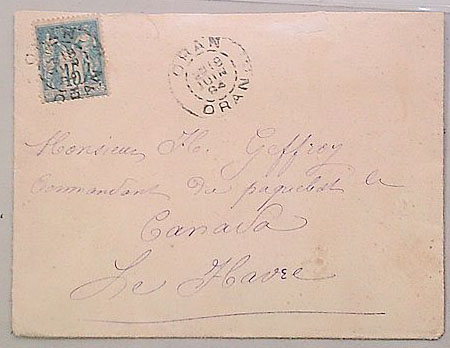 ORAN
15
ORAN
ORAN
19
JUIN
84
ORAN
Monsieur H. Geffroy
Commandant du paquebot le
Canada
Le Havre